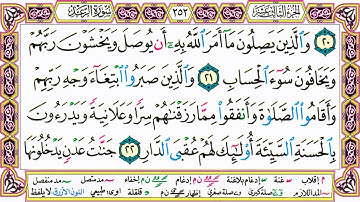 الجزء الثالث عشر ٢٥٢ سورة الرعد
٢٠ وَٱلَّذِينَ يَصِلُونَ مَآ أَمَرَ ٱللَّهُ بِهِۦٓ أَن يُوصَلَ وَيَخْشَوْنَ رَبَّهُمْ
وَيَخَافُونَ سُوٓءَ ٱلْحِسَابِ ٢١ وَٱلَّذِينَ صَبَرُوا۟ ٱبْتِغَآءَ وَجْهِ رَبِّهِمْ
وَأَقَامُوا۟ ٱلصَّلَوٰةَ وَأَنفَقُوا۟ مِمَّا رَزَقْنَٰهُمْ سِرًّا وَعَلَانِيَةً وَيَدْرَءُونَ
بِٱلْحَسَنَةِ ٱلسَّيِّئَةَ أُو۟لَٰٓئِكَ لَهُمْ عُقْبَى ٱلدَّارِ ٢٢ جَنَّٰتُ عَدْنٍ يَدْخُلُونَهَا